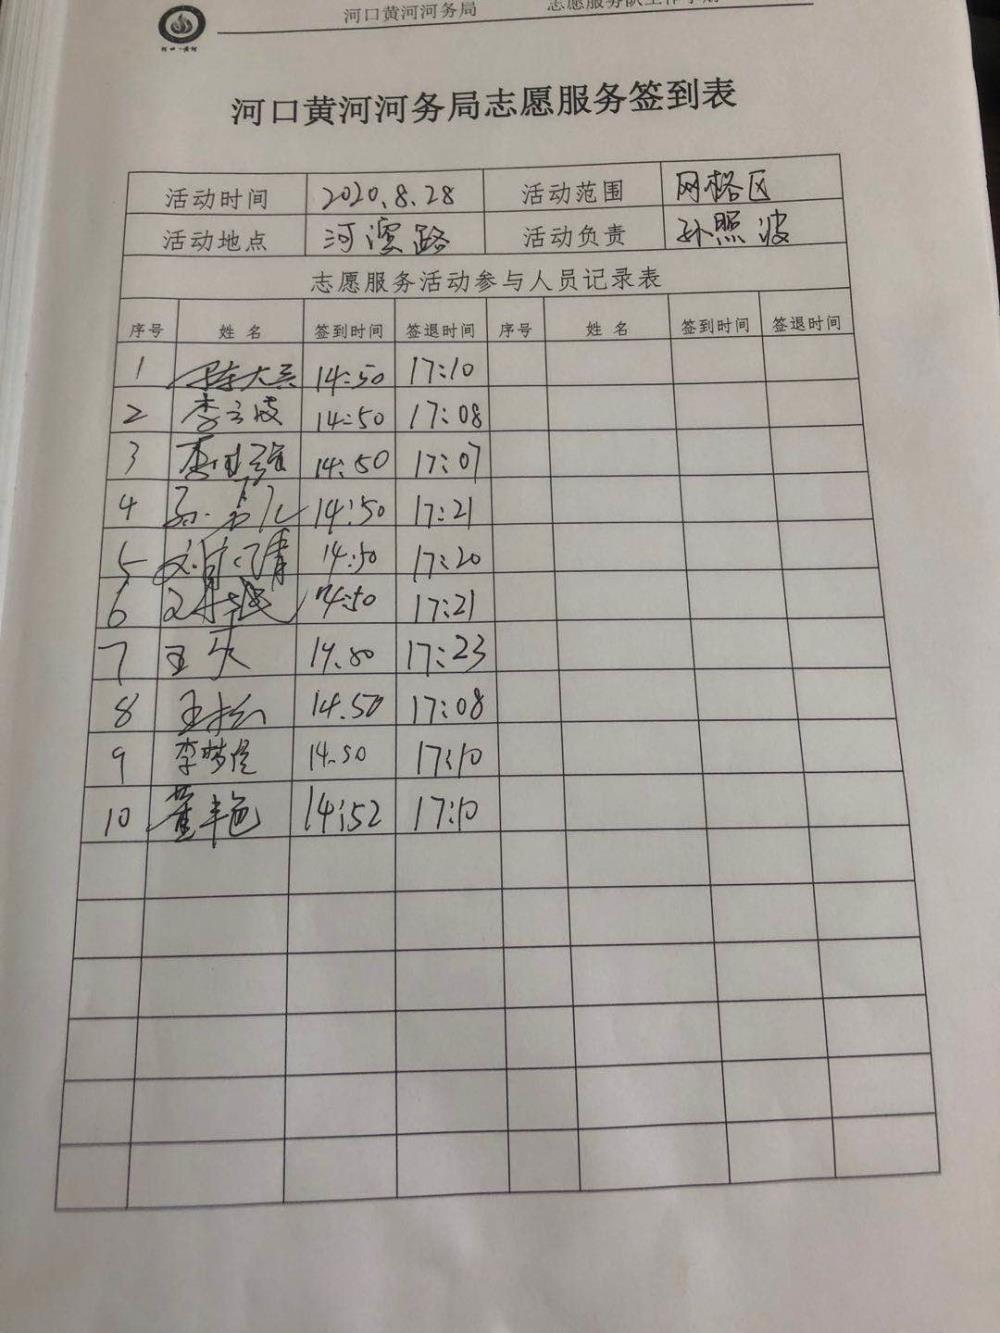 河口·黄河
河口黄河河务局
河口黄河河务局志愿服务签到表
活动时间 2020.8.28 活动范围 网格区
活动地点 河滨路 活动负责 孙照波
志愿服务活动参与人员记录表
序号 姓名 签到时间 签退时间 序号 姓名 签到时间 签退时间
1 14:50 17:10
2 李云波 14:50 17:08
3 李国强 14:50 17:07
4 14:50 17:21
5 14:50 17:20
6 14:50 17:21
7 王 14.50 17:23
8 王松 14.50 17:08
9 李梦 14.50 17:10
10 董丰艳 14:52 17:10